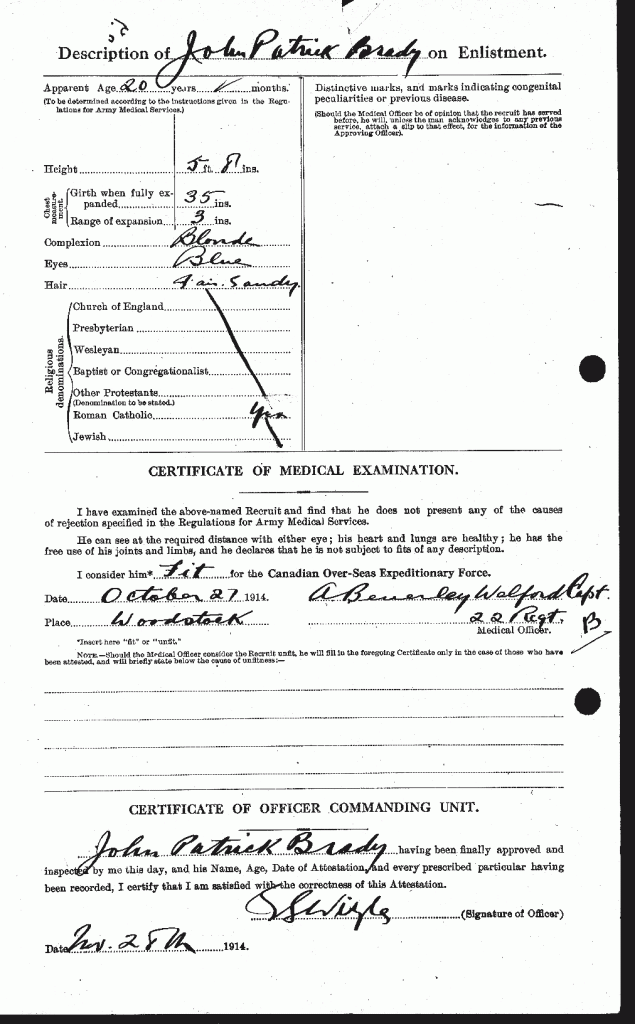 Description of John Patrick Brady on Enlistment.
Apparent Age 20 years ✓ months.
(To be determined according to the instructions given in the Regulations for Army Medical Services.)
Height 5 ft. 8 ins.
Chest measurement. Girth when fully expanded 35 ins.
Range of expansion 3 ins.
Complexion Blonde
Eyes Blue
Hair Fair. Sandy.
Religious denominations.
Church of England
Presbyterian
Wesleyan
Baptist or Congregationalist
Other Protestants
(Denomination to be stated.)
Roman Catholic Yes
Jewish
Distinctive marks, and marks indicating congenital
peculiarities or previous disease.
(Should the Medical Officer be of opinion that the recruit has served
before, he will, unless the man acknowledges to any previous
service, attach a slip to that effect, for the information of the
Approving Officer).
CERTIFICATE OF MEDICAL EXAMINATION.
I have examined the above-named Recruit and find that he does not present any of the causes
of rejection specified in the Regulations for Army Medical Services.
He can see at the required distance with either eye; his heart and lungs are healthy; he has the
free use of his joints and limbs, and he declares that he is not subject to fits of any description.
I consider him* Fit for the Canadian Over-Seas Expeditionary Force.
Date October 27 1914. A Beverley Welford Capt.
Place Woodstock 22 Regt. B
Medical Officer.
*Insert here "fit" or "unfit."
NOTE.—Should the Medical Officer consider the Recruit unfit, he will fill in the foregoing Certificate only in the case of those who have
been attested, and will briefly state below the cause of unfitness:—
CERTIFICATE OF OFFICER COMMANDING UNIT.
John Patrick Brady having been finally approved and
inspected by me this day, and his Name, Age, Date of Attestation, and every prescribed particular having
been recorded, I certify that I am satisfied with the correctness of this Attestation.
Wigle (Signature of Officer)
Date Nov. 28th 1914.